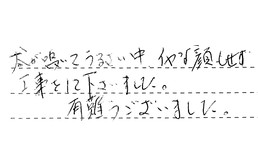 犬が鳴いてうるさい中 イヤな顔しせず
工事をして下さいました。
有難うございました。